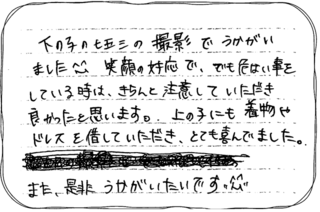 下の子の七五三の撮影でうかがい
ました 笑顔の対応で、でも危ない事を
している時は、きちんと注意していただき
良かったと思います。上の子にも着物や
ドレスを借していただき、とても喜んでました。
また、是非うかがいたいです